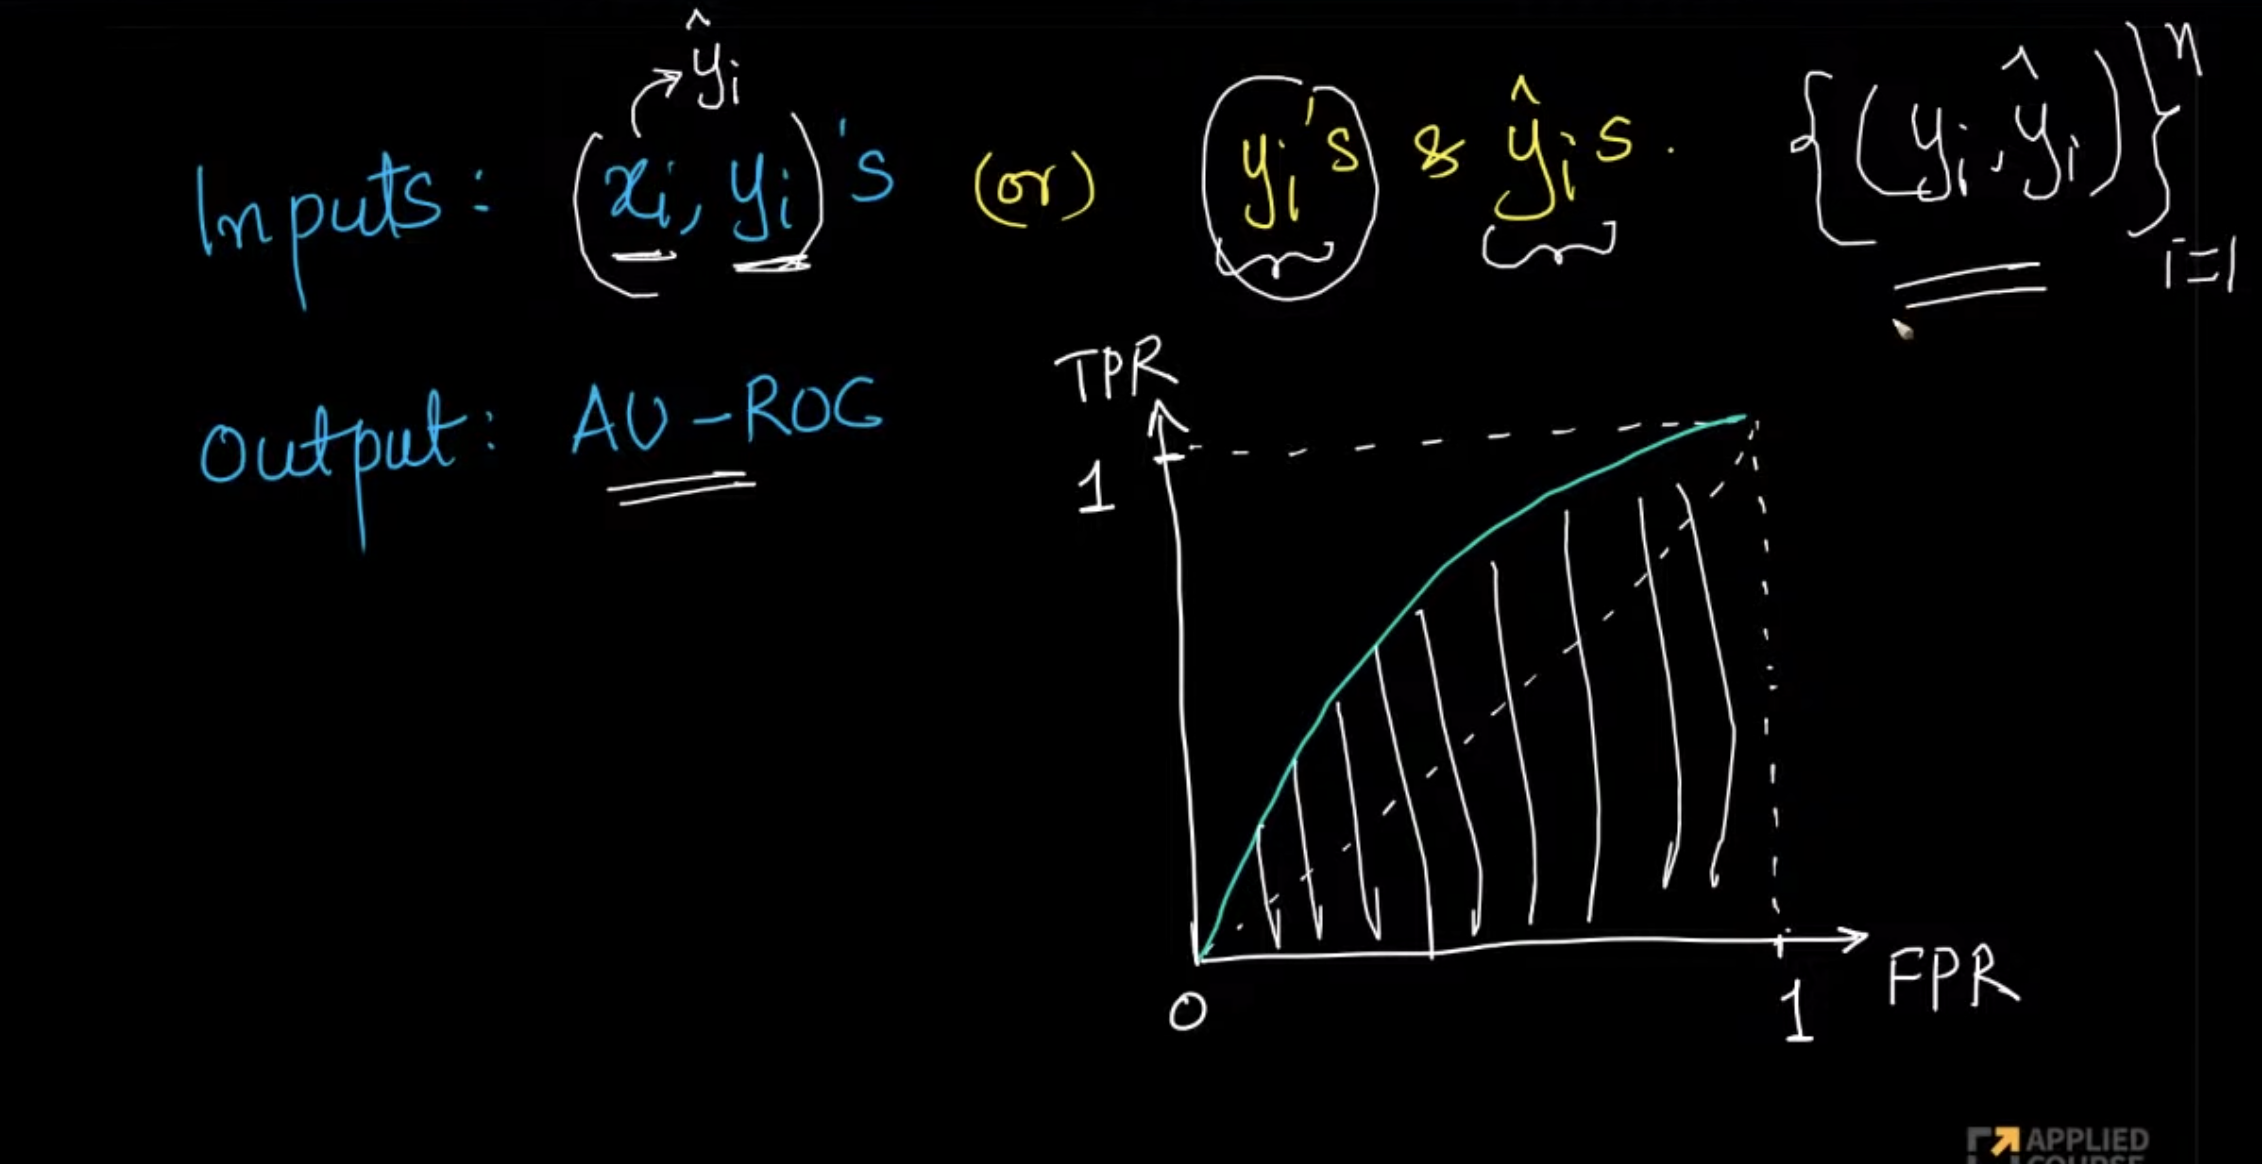 ŷi
Inputs: (xi, yi)'s (or) yi's & ŷis. {(yi, ŷi)}ⁿi=1
Output: AU-ROC
TPR
1
0
1
FPR
APPLIED
COURSE